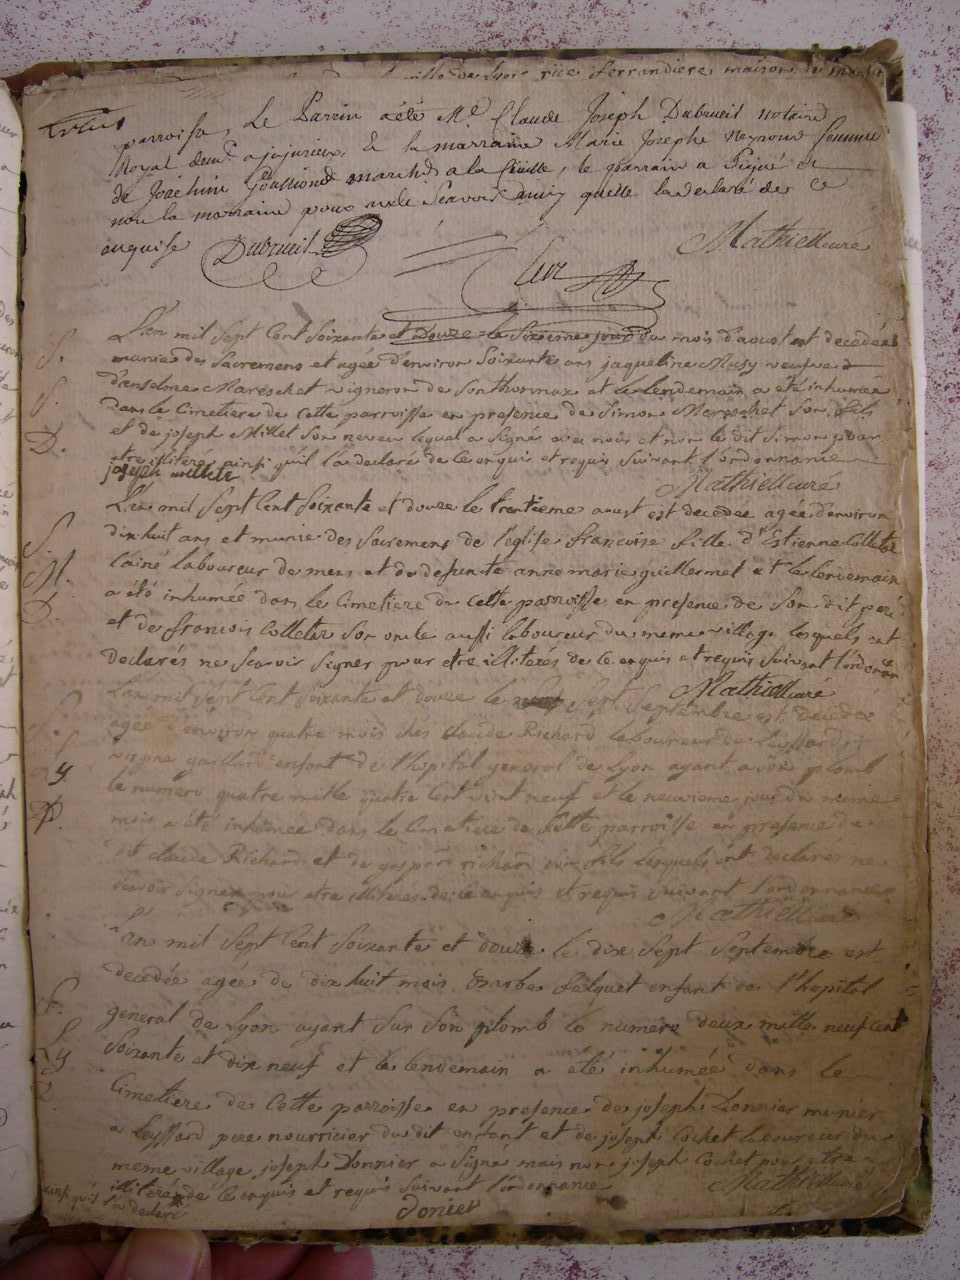 ville de Lyon rüe ferrandiere maison de
parroisse, Le Parrin a été Me Claude Joseph Dubreuil notaire
Royal a jujurieux, & la marraine Marie Josephe Reynoud femme
de Joachim marchd a la feuille, le parrain a signé et
non la marraine pour ne le sçavoir ainsy quelle la declaré de ce
enquise Dubreuil Mathieu curé
L'an mil sept cent soixante et douze le sixieme jour du mois d'aoust est decedée
munie des sacremens et agée d'environ soixante ans jaqueline Musy veufve
d'anselme Mareschet vigneron de Sonthonnax et le lendemain a été inhumée
dans le cimetiere de cette parroisse en presence de Simon Mareschet son fils
et de joseph Millet son neveu lequel a signé avec nous et non le dit Simon pour
etre illiteré ainsi qu'il l'a declaré de ce enquis et requis suivant l'ordonnance
joseph millet Mathieu curé
L'an mil sept cent soixante et douze le trentieme aoust est decedée agée d'environ
dix huit ans et munie des sacremens de l'église francoise fille d'Estienne Colletaz
l'ainé laboureur de mens et de defunte anne marie guillermet et le lendemain
a été inhumée dans le cimetiere de cette parroisse en presence de son dit pere
et de francois Colletaz son oncle aussi laboureur du meme village lesquels ont
declarés ne scavoir signer pour etre illiterés de ce enquis et requis suivant l'ordonn
Mathieu curé
L'an mil sept cent soixante et douze le sept septembre est decedée
agée d'environ quatre mois ches claude Richard laboureur de Leyssard
virgine gaillard enfant de l'hopital general de Lyon ayant a son plomb
le numero quatre mille quatre cent vint neuf et le neuvieme jour du meme
mois a été inhumée dans le cimetiere de cette parroisse en presence de
dit claude Richard et de gaspard richard son fils lesquels ont declarés ne
scavoir signer pour etre illiteres de ce enquis et requis suivant l'ordonnance
Mathieu curé
L'an mil sept cent soixante et douze le dix sept septembre est
decedée agée de dix huit mois Barbe falquet enfant de l'hopital
general de Lyon ayant sur son plomb le numero deux mille neuf cent
soixante et dix neuf et le lendemain a été inhumée dans le
cimetiere de cette parroisse en presence de joseph Donnier munier
a Leyssard pere nourricier du dit enfant et de joseph Cochet laboureur du
meme village joseph Donnier a signé mais non joseph Cochet pour etre
illiteré de ce enquis et requis suivant l'ordonnance Mathieu curé
ainsi qu'il l'a declaré donier